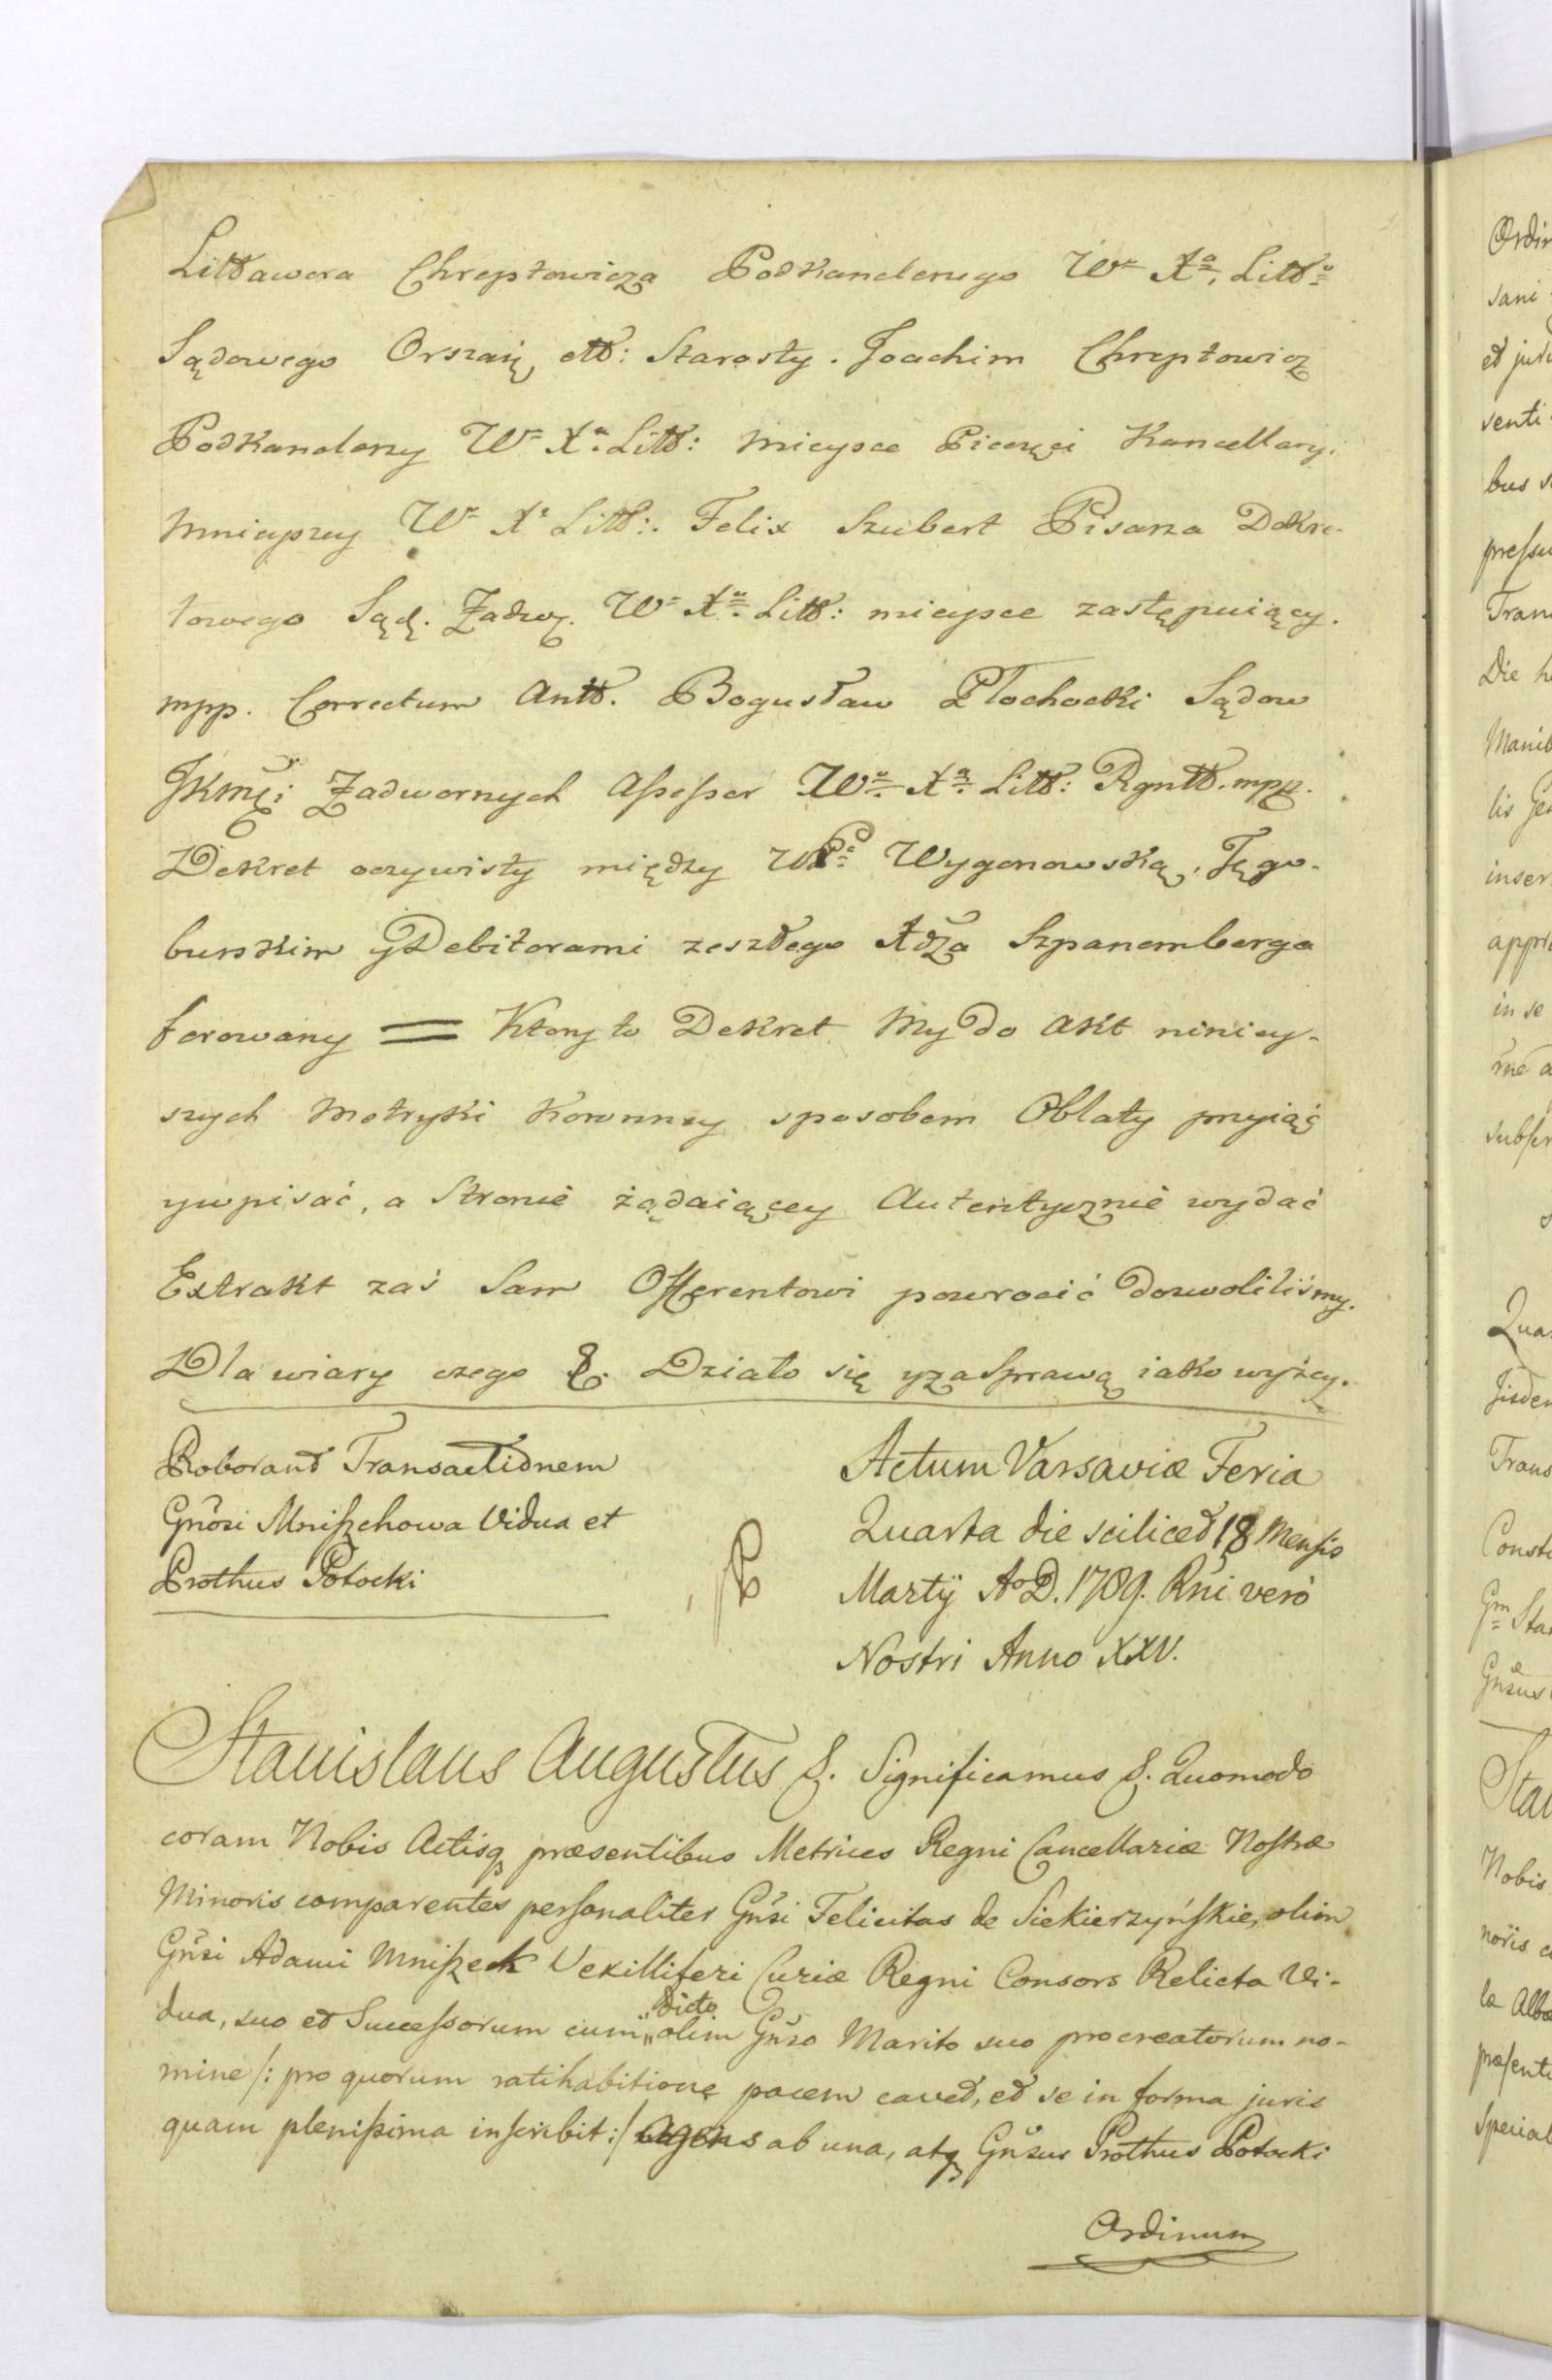 Littawora Chreptowicza Podkanclerzego Wo Xa. Litto
Sądowego Orszań. ett: Starosty. Joachim Chreptowicz
Podkanclerzy Wo Xa. Litt: Mieysce Pieczęci Kancellaryi
Mnieyszey Wo Xa Litt:. Felix Szubert Pisarza Dekre-
towego Sąd. Zadw. Wo Xa. Litt: mieysce zastępuiący.
mpp. Correctum Antt. Bogusław Płochocki Sądow
JKmci: Zadwornych Assessor Wo. Xa Litt: Rgntt. mpp.
Dekret oczywisty między WP Wygonowską, Tęgo-
burskim y Debitorami zeszłego Xdza Szpanemberga
ferowany = Ktory to Dekret My do Akt niniey-
szych Metryki Koronney sposobem Oblaty przyiąć
y wpisać, a Stronie żądaiącey Autentycznie wydać
Extrakt zaś Sam Offerentowi powrocić dozwoliliśmy.
Dla wiary czego &. Działo się y za Sprawą iako wyżey.
Roborant Transactionem
Gnosi Mniszchowa Vidua et
Prothus Potocki
Actum Varsaviæ Feria
Quarta die scilicet 18 Mensis
Martÿ Ao D. 1789. Rni verò
Nostri Anno XXV.
Stanislaus Augustus &. Significamus &. Quomodo
coram Nobis Actisq præsentibus Metrices Regni Cancellariæ Nostræ
Minoris comparentes personaliter Gnsi Felicitas de Siekierzyńskie, olim
Gnsi Adami Mniszech Vexilliferi Curiæ Regni Consors Relicta Vi-
dua, suo et Successorum cum "dicto" olim Gnso Marito suo procreatorum no-
mine /: pro quorum ratihabitione pacem cavet, et se in forma juris
quam plenissima inscribit :/ agens ab una, atq Gnsus Prothus Potocki
Ordinum
Ordin
sani
et
senti
bus
pressu
Tran
Die h
lis Gen
inser
in se
Qua
Trans
Const
Gm Sta
Gnsus
Sta
Nobis
noris c
præsent
special